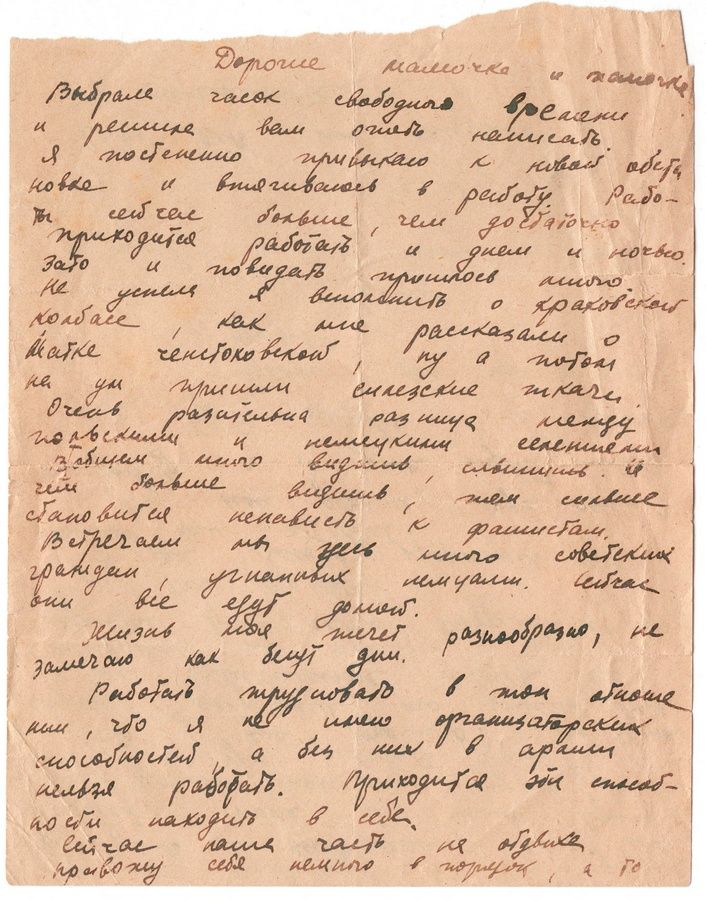 Дорогие мамочка и папочка
Выбрала часок свободного времени
и решила вам опять написать.
Я постепенно привыкаю к новой обста
новке и втягиваюсь в работу. Рабо-
ты сейчас больше, чем достаточно
приходится работать и днем и ночью.
Зато и повидать пришлось много.
Не успела я вспомнить о краковской
колбасе, как мне рассказали о
Матке Ченстоховской, ну а потом
на ум пришли силезские ткачи.
Очень разительна разница между
польскими и немецкими селениями
Вобщем много видишь, слышишь. И
чем больше видишь, тем сильнее
становится ненависть к фашистам.
Встречаем мы здесь много советских
граждан, угнанных немцами. Сейчас
они все едут домой.
Жизнь моя течет разнообразно, не
замечаю как бегут дни.
Работать трудновато в том отноше
нии, что я не имею организаторских
способностей, а без них в армии
нельзя работать. Приходится эти способ-
ности находить в себе.
Сейчас наша часть на отдыхе
привожу себя немного в порядок, а то